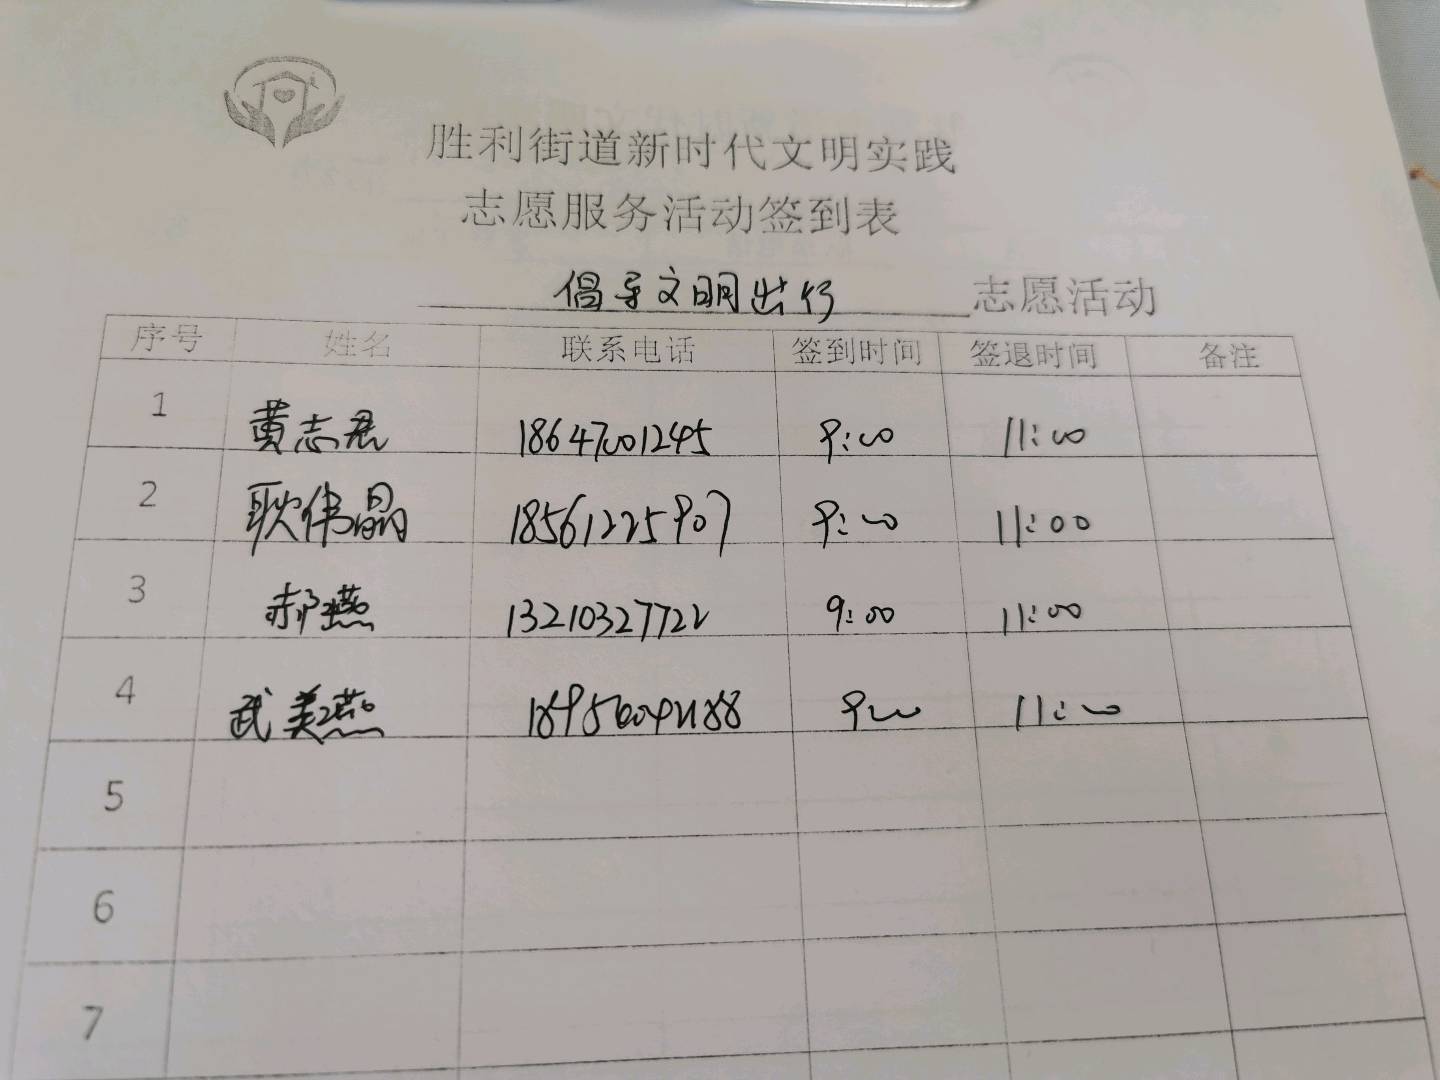 胜利街道新时代文明实践
志愿服务活动签到表
倡导文明出行 志愿活动
序号 姓名 联系电话 签到时间 签退时间 备注
1 黄志君 18647001245 9:00 11:00
2 耿伟晶 18561225907 9:00 11:00
3 郝燕 13210327722 9:00 11:00
4 武美燕 900 11:00
5
6
7